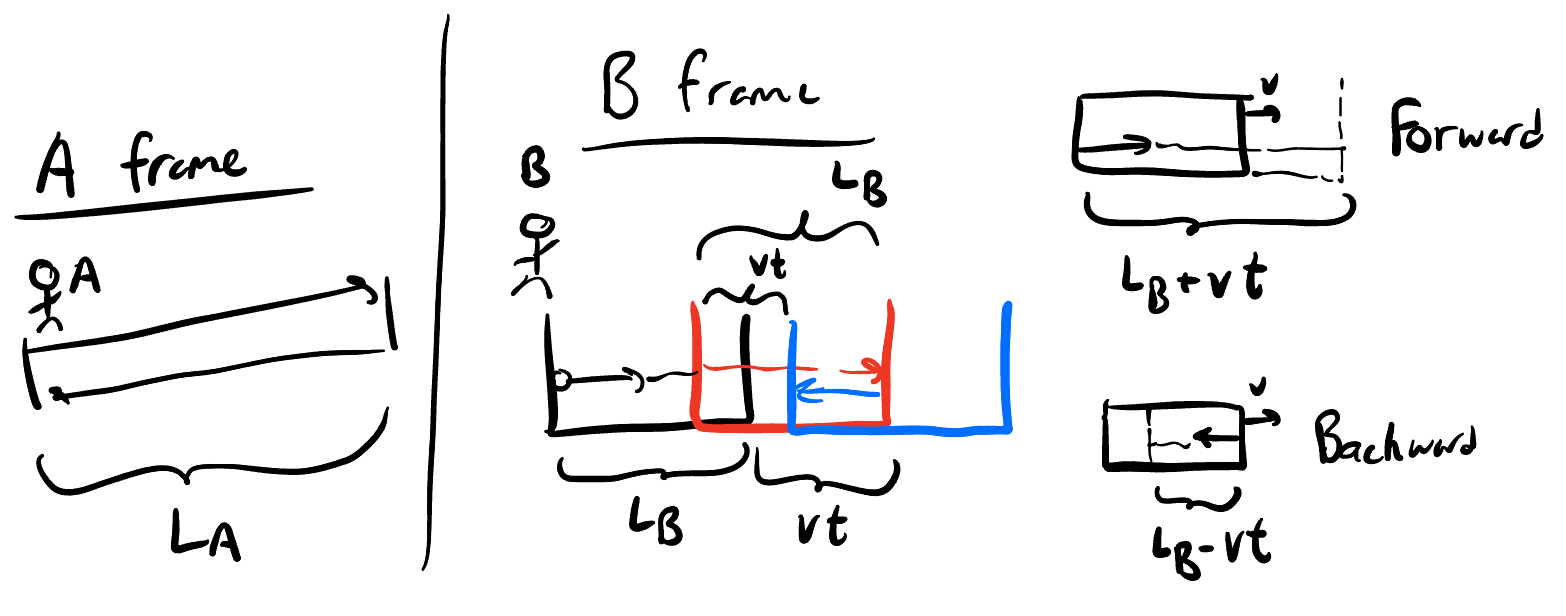 A frame
A
L_A
B frame
B
L_B
vt
L_B
vt
v
Forward
L_B + vt
v
Backward
L_B - vt